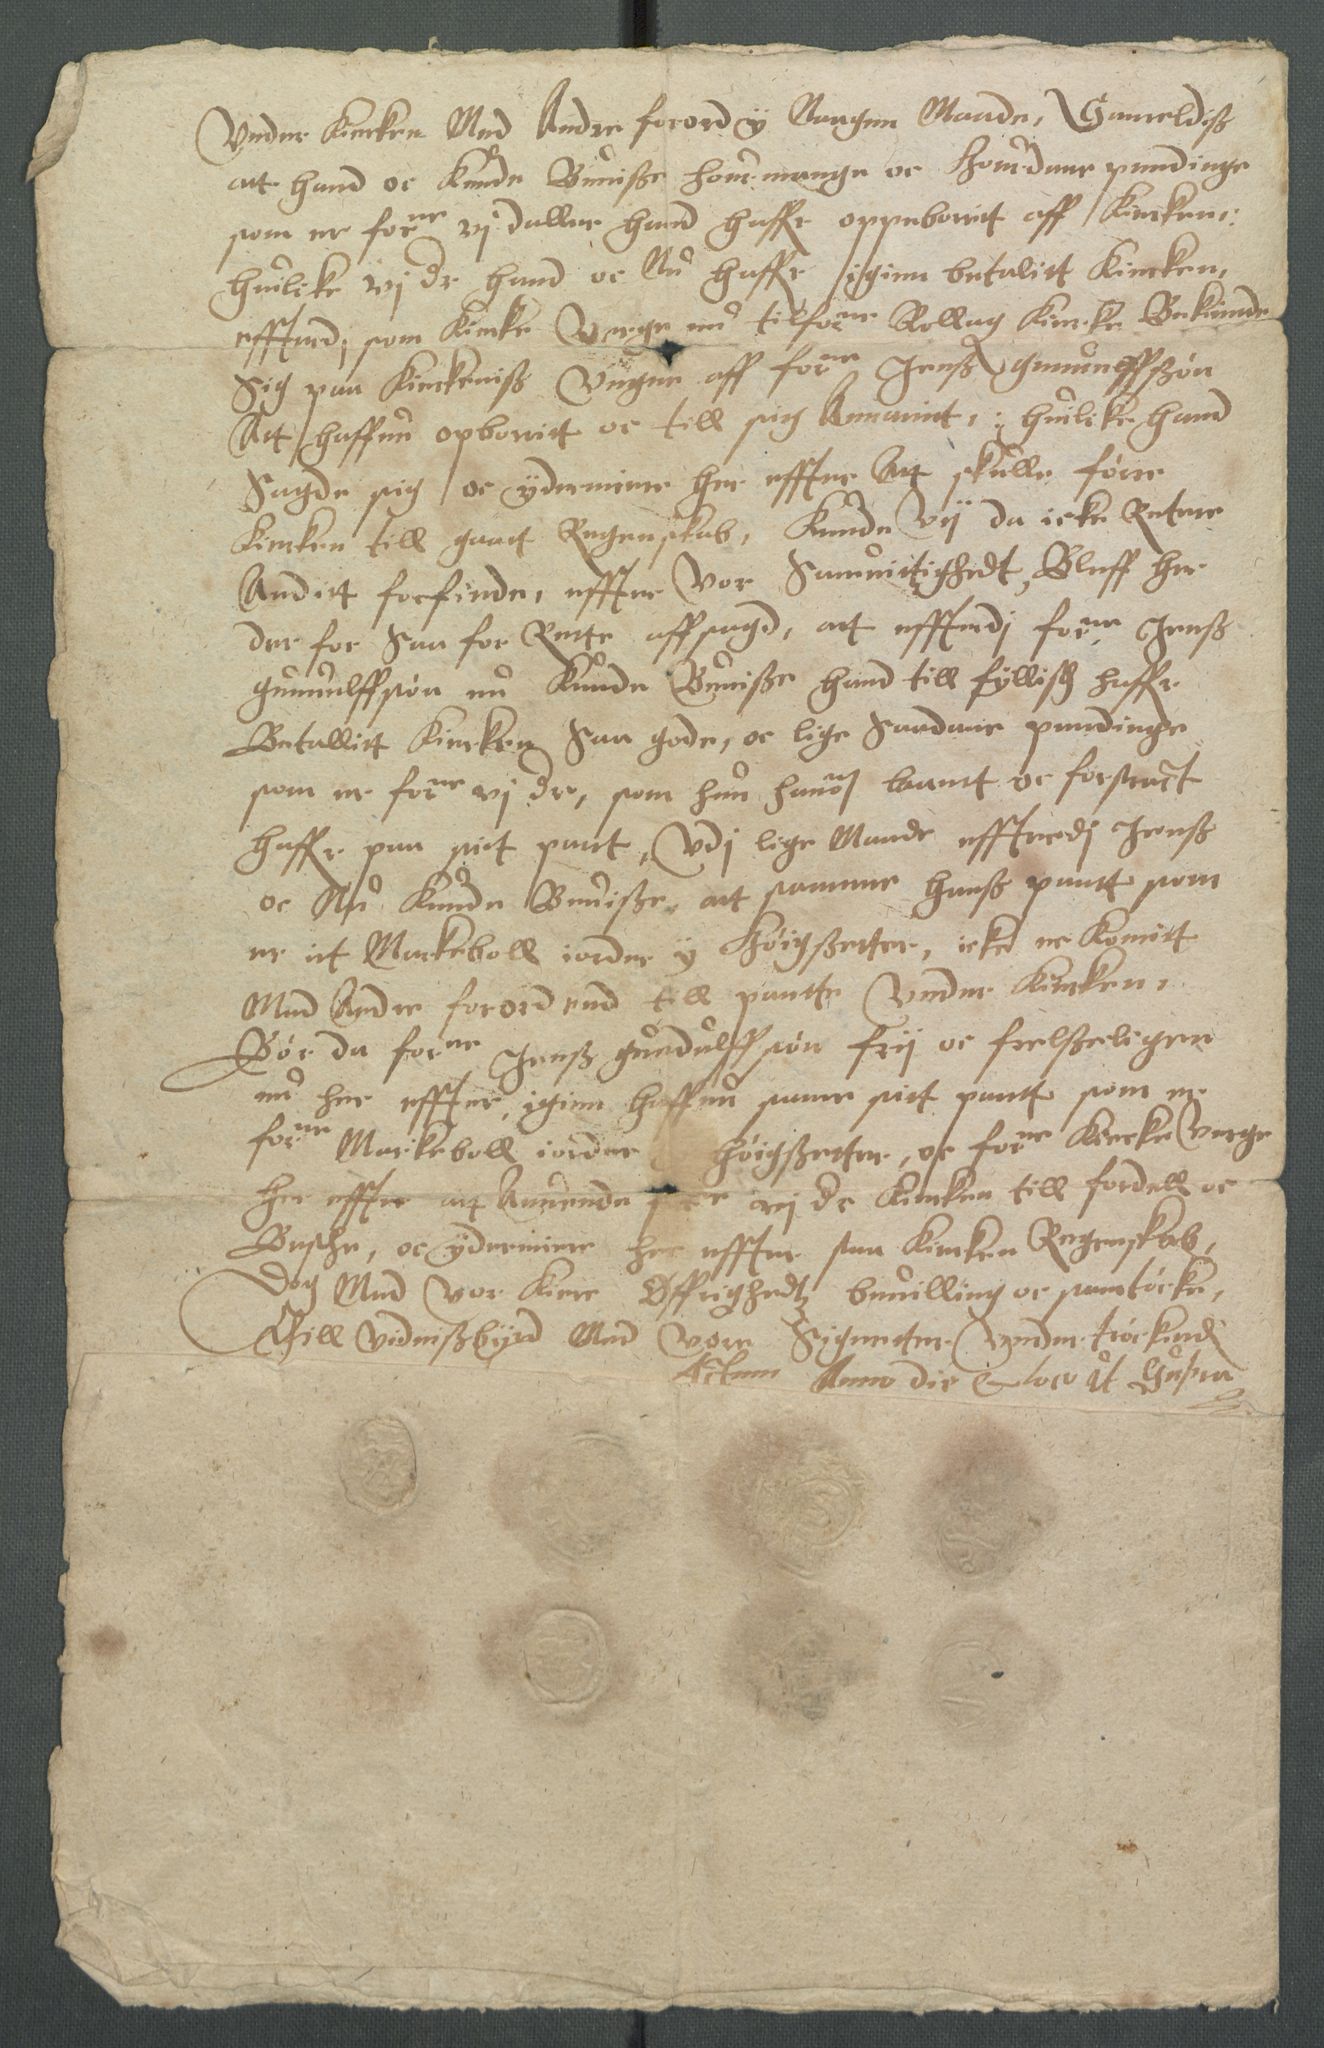 Vnder Kircken Med Andre forord y Nogen Maade, Sameledis
att hand oc Kunde Beuisse huormange oc huordane pendinge
som er forne vj daller hand haffr oppeborit aff Kircken,
huilke vj dr hand oc Nu haffr igien betalitt Kircken,
effterdj som Kircke Verge nu tilforne Rollag Kircke Bekiende
Sig paa Kirckenis Vegne aff forne Jenss gunnulffszøn
Att haffue opborritt oc till sig Annamit, huilke hand
Sagde sig oc ydermiere her effter Att skulle føre
Kircken till gaatt Regenskab, Kunde Vij da icke Rettere
Anditt forfinde, effter Vor Samuittighedt, Bleff her
der for Saa for Rette affsagd, att effterdj forne Jenss
gunnulffsøn nu Kunde Beuisse hand till fyllist haffr
Betallitt Kircken Saa gode, oc lige Saadane pendinge
som er forne vj dr, som hun hannom laantt oc forstract
haffr paa sitt pant, Vdj lige Maade effterdj Jenss
oc Nu Kunde Beuisse, att samme hans pantt som
er it Markeboll iorder y Høigsetter, icke er Komitt
Med Andre forord end till pantte Vnder Kircken,
Bør da forne Jenss gundulffsøn frij oc frelsseligen
nu her effter, igien haffue samme sitt pantt som er
forne Markeboll iorder Høigsetter, oc forne Kircke Verge
her effter att Anuende forne vj dr Kircken till fordell oc
Beste, oc ydermiere her effter paa Kircken Regenskab,
Dog Med Vor Kiere Øffrighedtz beuilling oc samtøcke,
Till Vidnissbyrd Med Vore Signetter Vnder trøckindis
Actum Anno die & loco Ut Supra